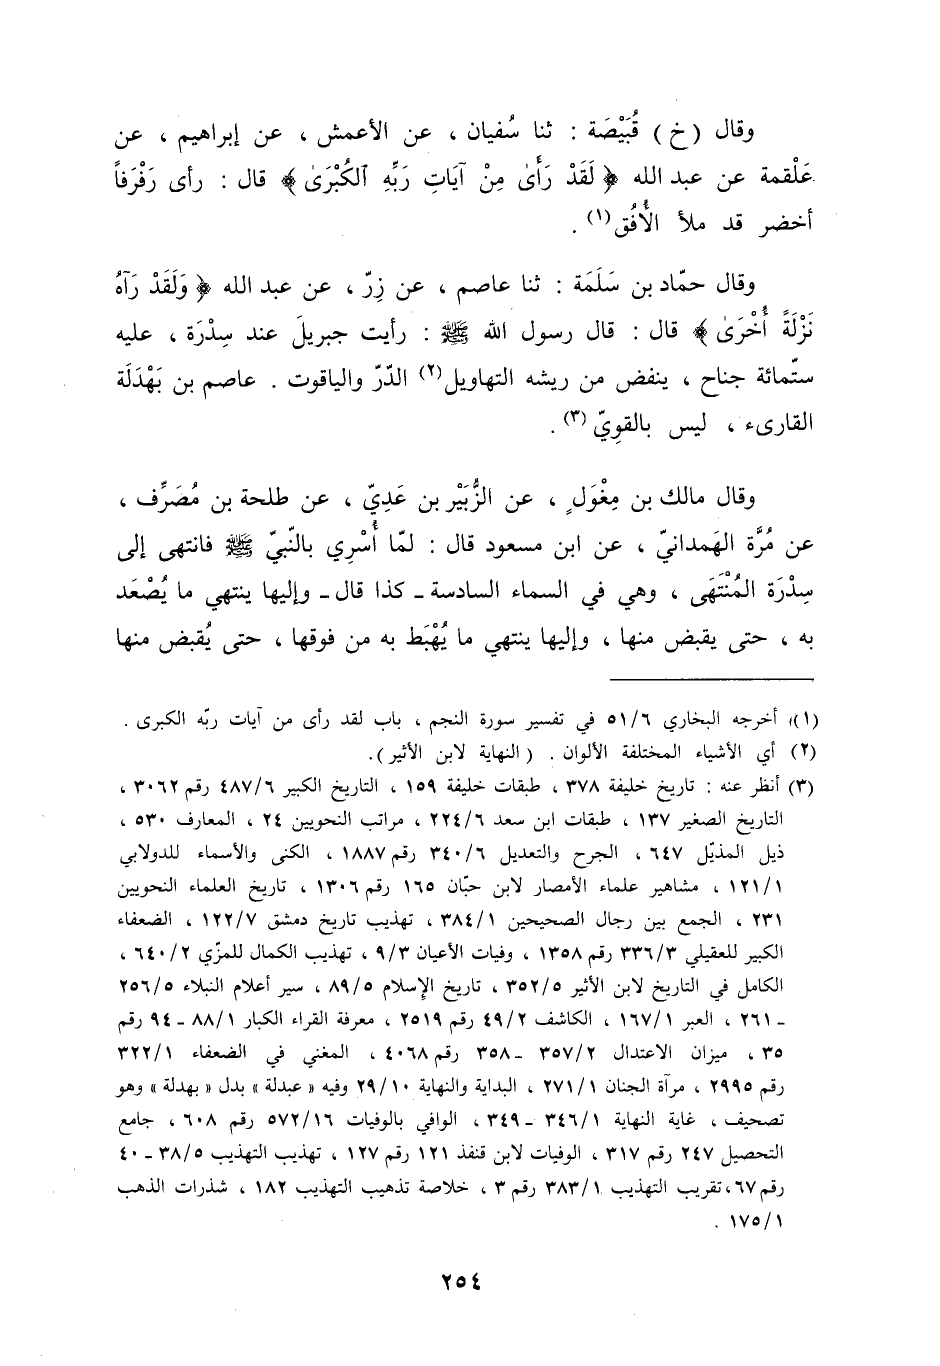 وقال (خ) قُبَيْصَة : ثنا سُفيان ، عن الأعمش ، عن إبراهيم ، عن
عَلْقمة عن عبد الله ﴿ لَقَدْ رَأَىٰ مِنْ آيَاتِ رَبِّهِ ٱلكُبْرَىٰ ﴾ قال : رأى رَفْرَفاً
أخضر قد ملأ الأُفُق(١) .
وقال حمّاد بن سَلَمَة : ثنا عاصم ، عن زِرّ ، عن عبد الله ﴿ وَلَقَدْ رَآهُ
نَزْلَةً أُخْرَىٰ ﴾ قال : قال رسول الله ﷺ : رأيت جبريلَ عند سِدْرَة ، عليه
ستّمائة جناح ، ينفض من ريشه التهاويل(٢) الدّرّ والياقوت . عاصم بن بَهْدَلَة
القارىء ، ليس بالقويّ(٣) .
وقال مالك بن مِغْوَلٍ ، عن الزُّبَيْر بن عَدِيّ ، عن طلحة بن مُصَرِّف ،
عن مُرَّة الهَمدانيّ ، عن ابن مسعود قال : لمّا أُسْرِي بالنّبيّ ﷺ فانتهى إلى
سِدْرَة المُنْتَهَى ، وهي في السماء السادسة ـ كذا قال ـ وإليها ينتهي ما يُصْعَد
به ، حتى يقبض منها ، وإليها ينتهي ما يُهْبَط به من فوقها ، حتى يُقبض منها
(١) أخرجه البخاري ٥١/٦ في تفسير سورة النجم ، باب لقد رأى من آيات ربّه الكبرى .
(٢) أي الأشياء المختلفة الألوان . (النهاية لابن الأثير).
(٣) أنظر عنه : تاريخ خليفة ٣٧٨ ، طبقات خليفة ١٥٩ ، التاريخ الكبير ٤٨٧/٦ رقم ٣٠٦٢ ،
التاريخ الصغير ١٣٧ ، طبقات ابن سعد ٢٢٤/٦ ، مراتب النحويين ٢٤ ، المعارف ٥٣٠ ،
ذيل المذيّل ٦٤٧ ، الجرح والتعديل ٣٤٠/٦ رقم ١٨٨٧ ، الكنى والأسماء للدولابي
١٢١/١ ، مشاهير علماء الأمصار لابن حبّان ١٦٥ رقم ١٣٠٦ ، تاريخ العلماء النحويين
٢٣١ ، الجمع بين رجال الصحيحين ٣٨٤/١ ، تهذيب تاريخ دمشق ١٢٢/٧ ، الضعفاء
الكبير للعقيلي ٣٣٦/٣ رقم ١٣٥٨ ، وفيات الأعيان ٩/٣ ، تهذيب الكمال للمزّي ٦٤٠/٢ ،
الكامل في التاريخ لابن الأثير ٣٥٢/٥ ، تاريخ الإسلام ٨٩/٥ ، سير أعلام النبلاء ٢٥٦/٥
ـ ٢٦١ ، العبر ١٦٧/١ ، الكاشف ٤٩/٢ رقم ٢٥١٩ ، معرفة القراء الكبار ٨٨/١ ـ ٩٤ رقم
٣٥ ، ميزان الاعتدال ٣٥٧/٢ ـ ٣٥٨ رقم ٤٠٦٨ ، المغني في الضعفاء ٣٢٢/١
رقم ٢٩٩٥ ، مرآة الجنان ٢٧١/١ ، البداية والنهاية ٢٩/١٠ وفيه « عبدلة » بدل « بهدلة » وهو
تصحيف ، غاية النهاية ٣٤٦/١ ـ ٣٤٩ ، الوافي بالوفيات ٥٧٢/١٦ رقم ٦٠٨ ، جامع
التحصيل ٢٤٧ رقم ٣١٧ ، الوفيات لابن قنفذ ١٢١ رقم ١٢٧ ، تهذيب التهذيب ٣٨/٥ ـ ٤٠
رقم ٦٧ ، تقريب التهذيب ٣٨٣/١ رقم ٣ ، خلاصة تذهيب التهذيب ١٨٢ ، شذرات الذهب
١٧٥/١ .
٢٥٤